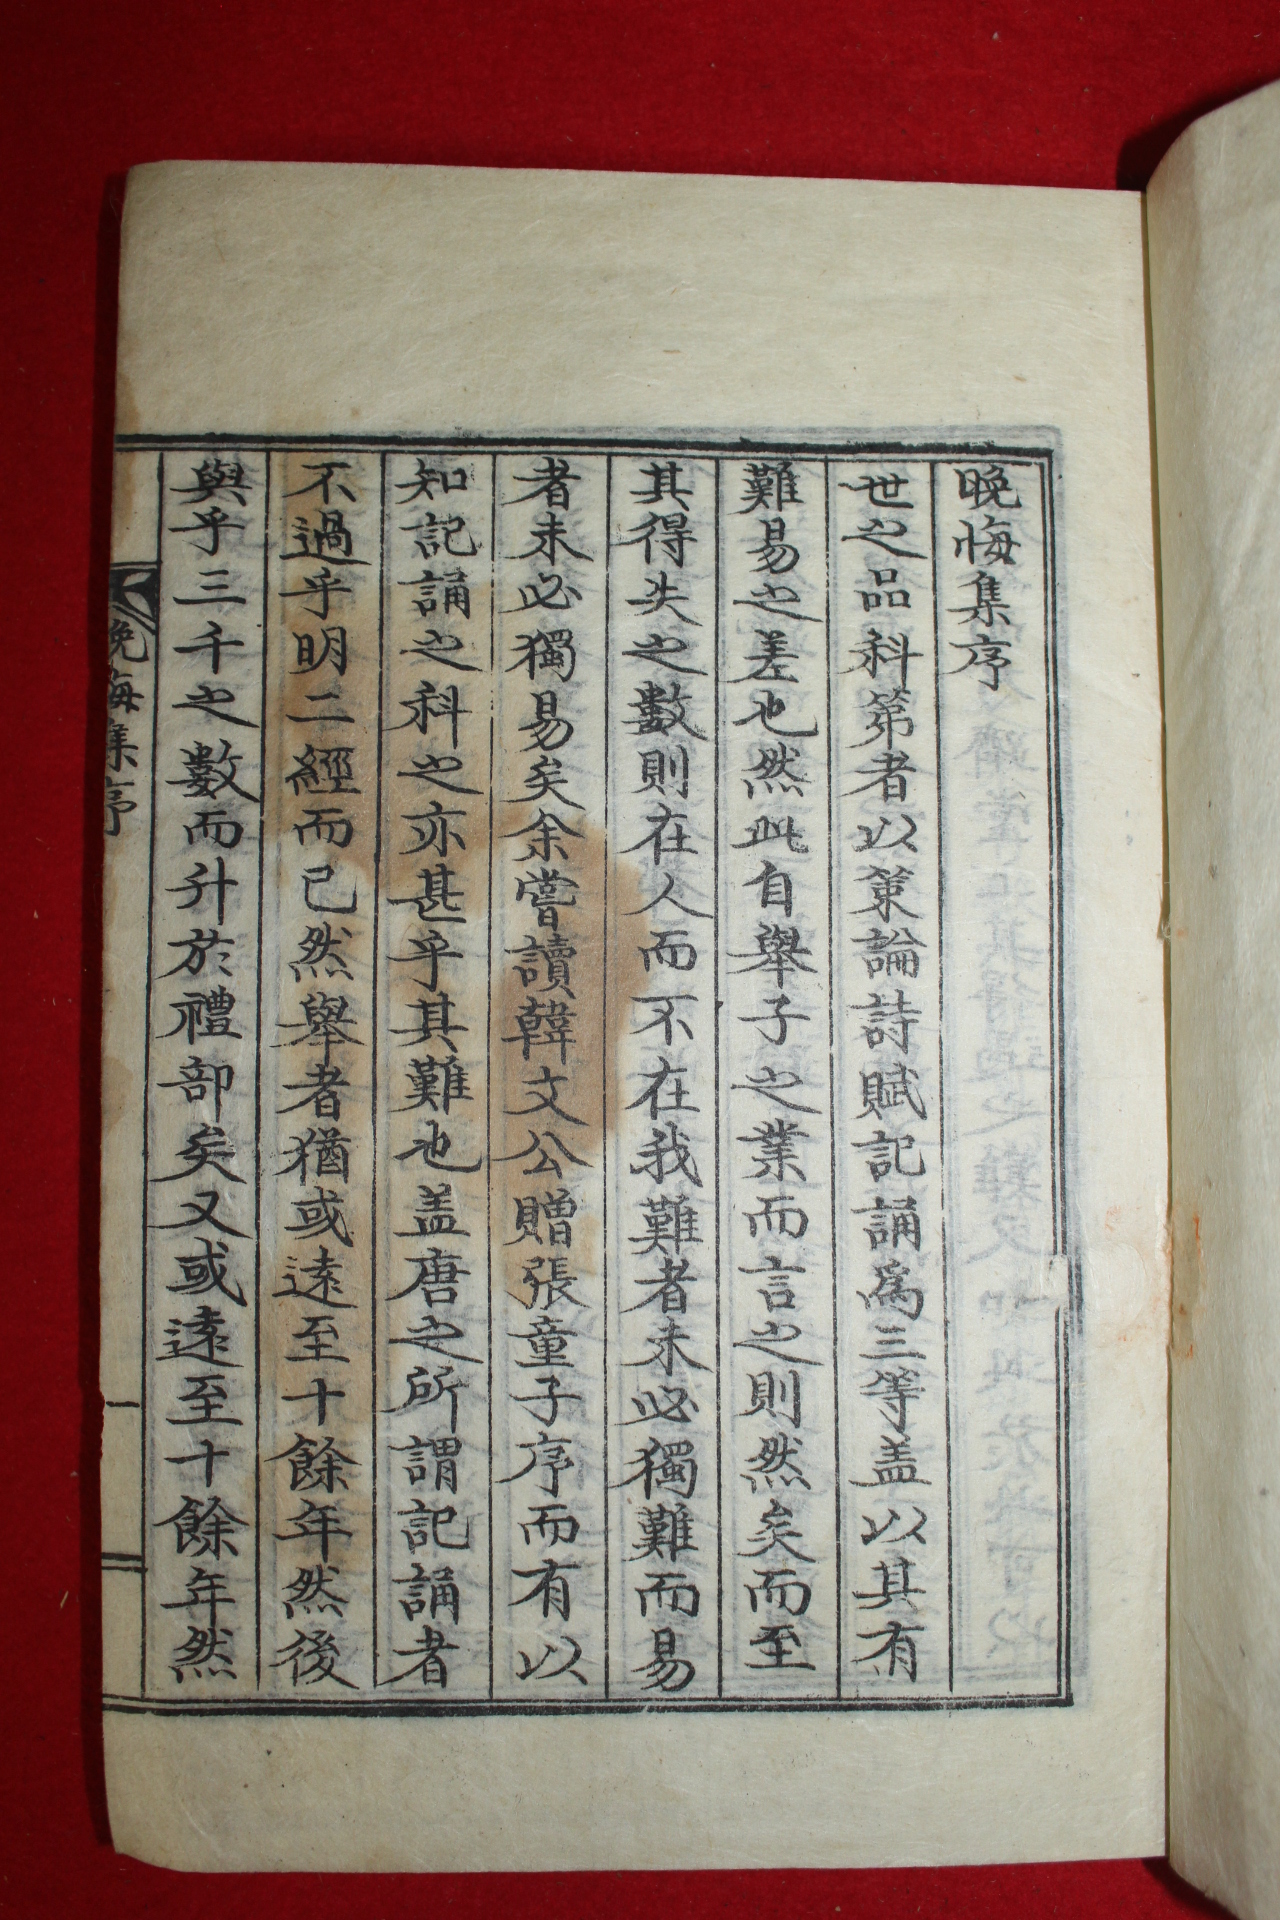 晩悔集序
世之品科第者以策論詩賦記誦爲三等盖以其有
難易之差也然此自舉子之業而言之則然矣而至
其得失之數則在人而不在我難者未必獨難而易
者未必獨易矣余嘗讀韓文公贈張童子序而有以
知記誦之科之亦甚乎其難也盖唐之所謂記誦者
不過乎明二經而已然舉者猶或遠至十餘年然後
與乎三千之數而升於禮部矣又或遠至十餘年然
晩悔集序
一